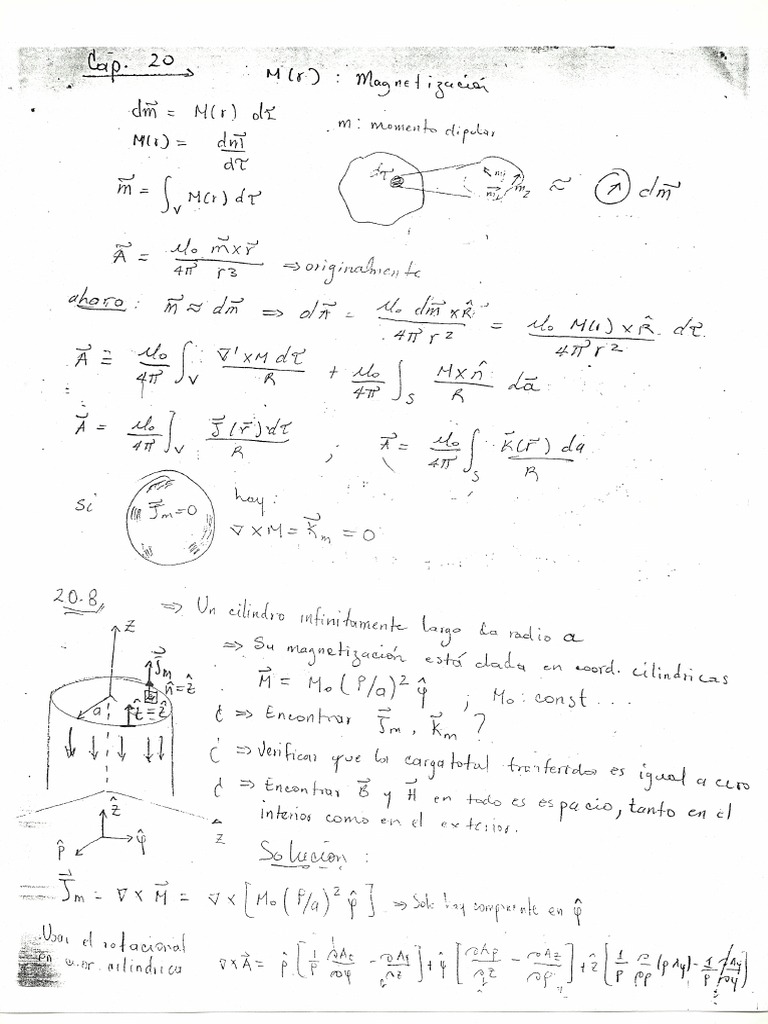 Cap. 20
M(r) : Magnetización
dm⃗ = M(r) dτ
m: momento dipolar
M(r) = dm⃗/dτ
m⃗ = ∫_V M(r) dτ
dτ m₁ m₂ ≈ dm⃗
A⃗ = μ₀/4π m⃗×r⃗/r3 ⇒ originalmente
ahora: m⃗ ≈ dm⃗ ⇒ dA⃗ = μ₀ dm⃗ × R̂/4π r² = μ₀ M(r) × R̂/4π r² dτ
A⃗ = μ₀/4π ∫_V ∇'×M dτ/R + μ₀/4π ∫_S M×n̂/R da⃗
A⃗ = μ₀/4π ∫_V J⃗(r⃗)dτ/R ; A⃗ = μ₀/4π ∫_S K⃗(r⃗) da/R
si J⃗m=0 hay:
∇×M = K⃗m = 0
20.8 ⇒ Un cilindro infinitamente largo de radio a
⇒ Su magnetización está dada en coord. cilindricas
M⃗ = M₀(ρ/a)² φ̂ ; M₀: const...
¿ ⇒ Encontrar J⃗m, K⃗m ?
¿ ⇒ Verificar que la carga total tranferida es igual a cero
¿ ⇒ Encontrar B⃗ y H⃗ en todo es espacio, tanto en el
interior como en el exterior.
z J⃗m n̂=ẑ a t̂=ẑ
ẑ ρ̂ φ̂ z
Solución:
J⃗m = ∇× M⃗ = ∇× [M₀(ρ/a)² φ̂] ⇒ Solo hay componente en φ̂
Usar el rotacional
en coor. cilindrica
∇×A⃗ = ρ̂ [1/ρ ∂Az/∂φ - ∂Aφ/∂z] + φ̂ [∂Aρ/∂z - ∂Az/∂ρ] + ẑ [1/ρ ∂/∂ρ (ρAφ) - 1/ρ ∂Aρ/∂φ]